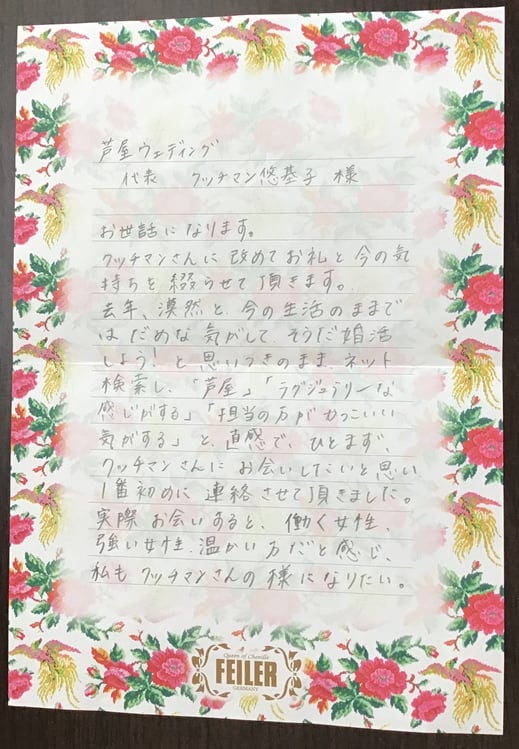 芦屋ウェディング
代表 クッチマン悠基子 様
お世話になります。
クッチマンさんに 改めてお礼と今の気
持ちを 綴らせて頂きます。
去年、漠然と 今の生活のままで
はだめな気がして、そうだ婚活
しよう!と思いつきのまま、ネット
検索し、「芦屋」「ラグジュアリーな
感じがする」「担当の方がかっこいい
気がする」と、直感で、ひとまず、
クッチマンさんに お会いしたいと思い
1番初めに 連絡させて頂きました。
実際 お会いすると、働く女性、
強い女性、温かい方だと感じ、
私も クッチマンさんの様になりたい。
Queen of Chenille
FEILER
GERMANY